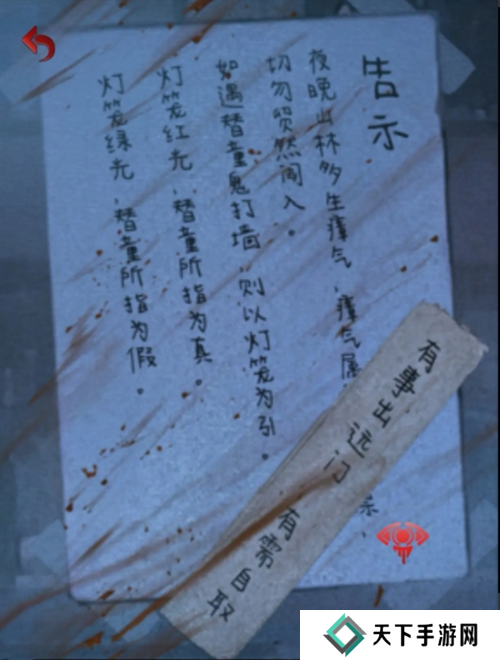 告示
夜晚山林多生瘴气，瘴气属
切勿贸然闯入。
如遇替童鬼打墙，则以灯笼为引。
灯笼红光，替童所指为真。
灯笼绿光，替童所指为假。
有事出远门
有需自取
天下手游网